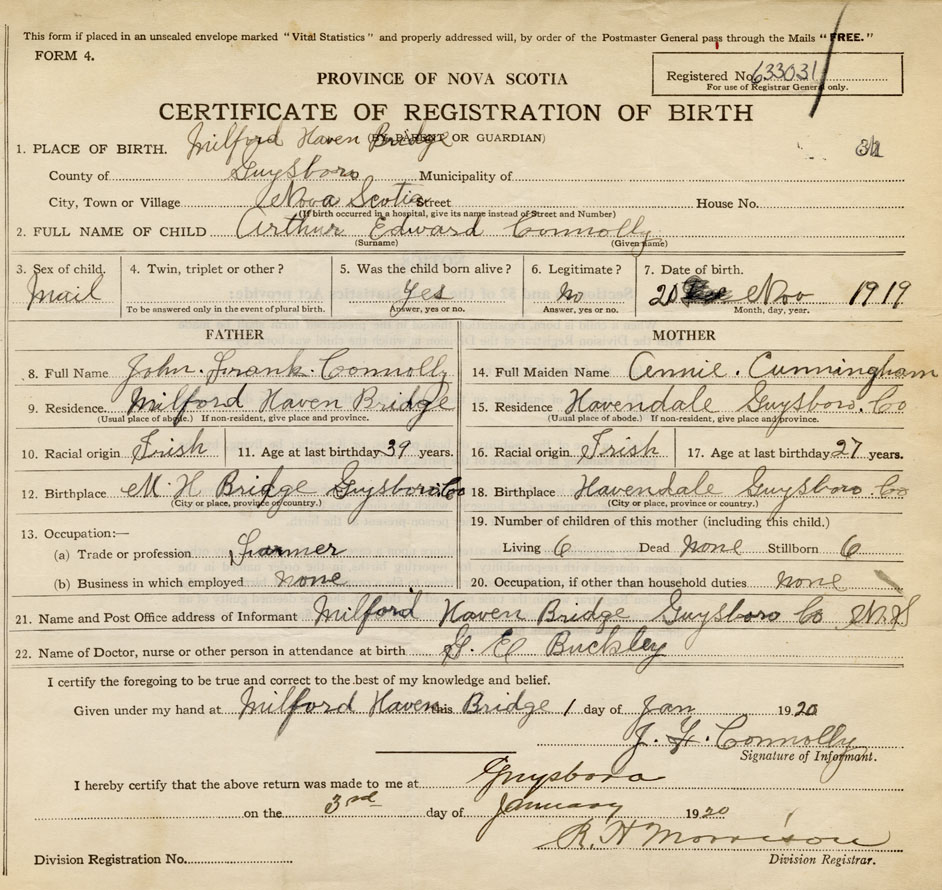 This form if placed in an unsealed envelope marked "Vital Statistics" and properly addressed will, by order of the Postmaster General pass through the Mails "FREE."
FORM 4.
PROVINCE OF NOVA SCOTIA
Registered No. 633031
For use of Registrar General only.
CERTIFICATE OF REGISTRATION OF BIRTH
(BY PARENT OR GUARDIAN)
1. PLACE OF BIRTH. Milford Haven Bridge
County of Guysboro Municipality of
City, Town or Village Nova Scotia Street House No.
(If birth occurred in a hospital, give its name instead of Street and Number)
2. FULL NAME OF CHILD Arthur Edward Connolly
(Surname) (Given name)
3. Sex of child. Mail
4. Twin, triplet or other?
To be answered only in the event of plural birth.
5. Was the child born alive? Yes
Answer, yes or no.
6. Legitimate? no
Answer, yes or no.
7. Date of birth. 20 Nov 1919
Month, day, year.
FATHER
8. Full Name John. Frank. Connolly
9. Residence. Milford Haven Bridge
(Usual place of abode.) If non-resident, give place and province.
10. Racial origin Irish 11. Age at last birthday 39 years.
12. Birthplace M. H Bridge Guysboro Co
(City or place, province or country.)
13. Occupation:—
(a) Trade or profession Farmer
(b) Business in which employed none
MOTHER
14. Full Maiden Name Annie. Cunningham
15. Residence Havendale Guysboro. Co
(Usual place of abode.) If non-resident, give place and province.
16. Racial origin Irish 17. Age at last birthday 27 years.
18. Birthplace Havendale Guysboro Co
(City or place, province or country.)
19. Number of children of this mother (including this child.)
Living 6 Dead none Stillborn 6
20. Occupation, if other than household duties none
21. Name and Post Office address of Informant Milford Haven Bridge Guysboro Co N.S
22. Name of Doctor, nurse or other person in attendance at birth Buckley
I certify the foregoing to be true and correct to the best of my knowledge and belief.
Given under my hand at Milford Haven this Bridge 1 day of Jan 1920
J. F. Connolly
Signature of Informant.
I hereby certify that the above return was made to me at Guysboro
on the 3rd day of January 1920
R. H Morrison
Division Registration No. Division Registrar.